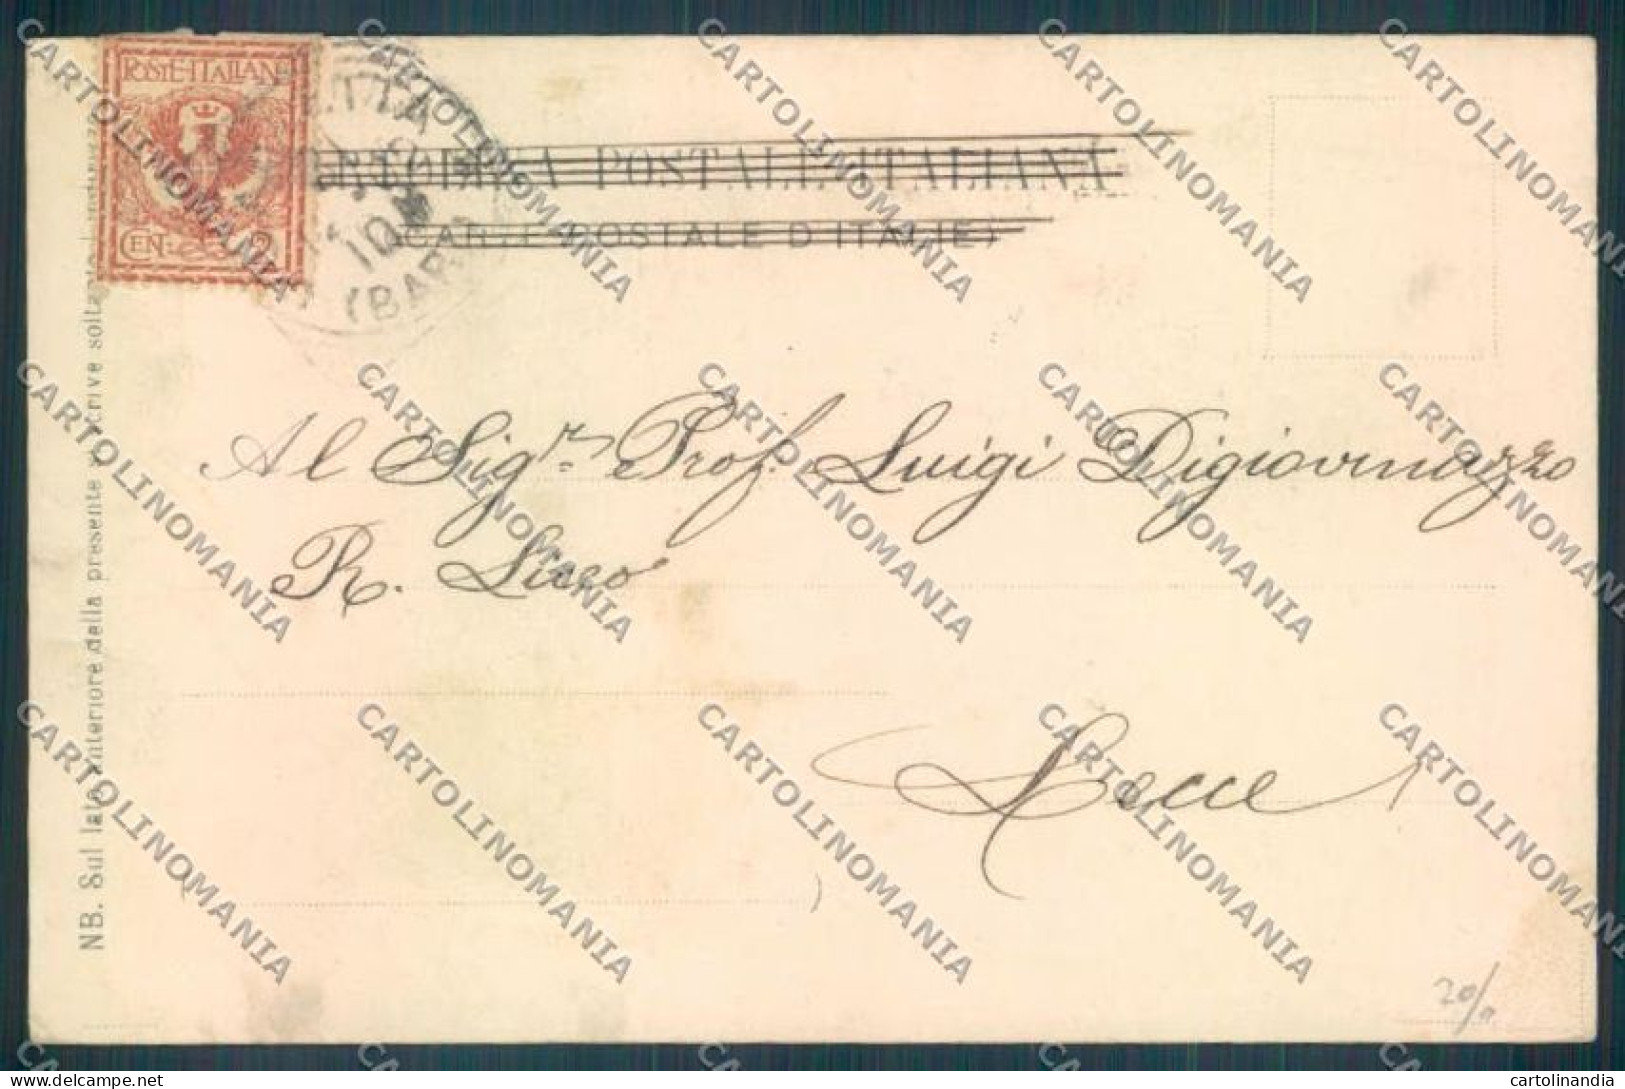 POSTE·ITALIANE
CEN: 2
ETTA
10
(BARI
CARTOLINA POSTALE ITALIANA
(CARTE POSTALE D'ITALIE)
Al Sig.r Prof. Luigi Digiovinazzo
R. Liceo
Lecce
NB. Sul lato anteriore della presente si scrive soltanto
20/
CARTOLINOMANIA
cartolinandia